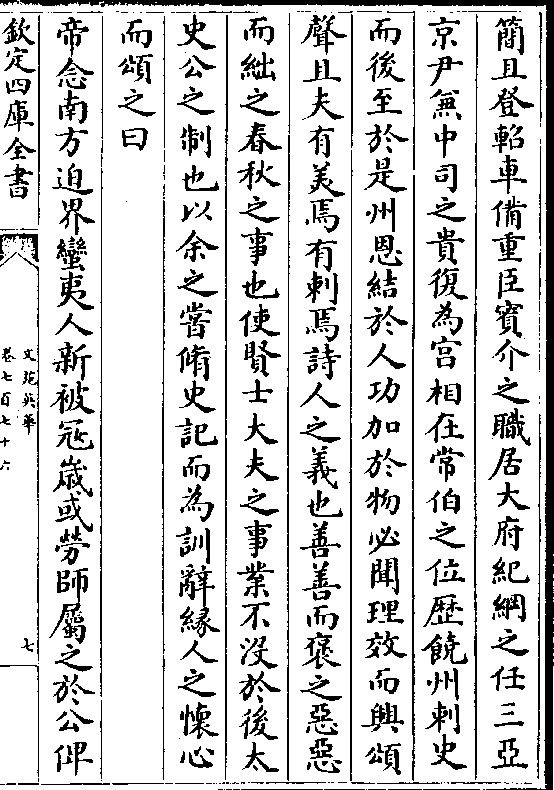 簡且登軺車備重臣賓介之職居大府紀綱之任三亞
京尹無中司之貴復為宮相在常伯之位歴饒州刺史
而後至於是州恩結於人功加於物必聞理效而興頌
聲且夫有美焉有刺焉詩人之義也善善而褒之惡惡
而絀之春秋之事也使賢士大夫之事業不没於後太
史公之制也以余之嘗脩史記而為訓辭緣人之懷心
而頌之曰
帝念南方迫界蠻夷人新被冦歳或勞師屬之於公俾
欽定四庫全書
文苑英華
卷七百七十六
七